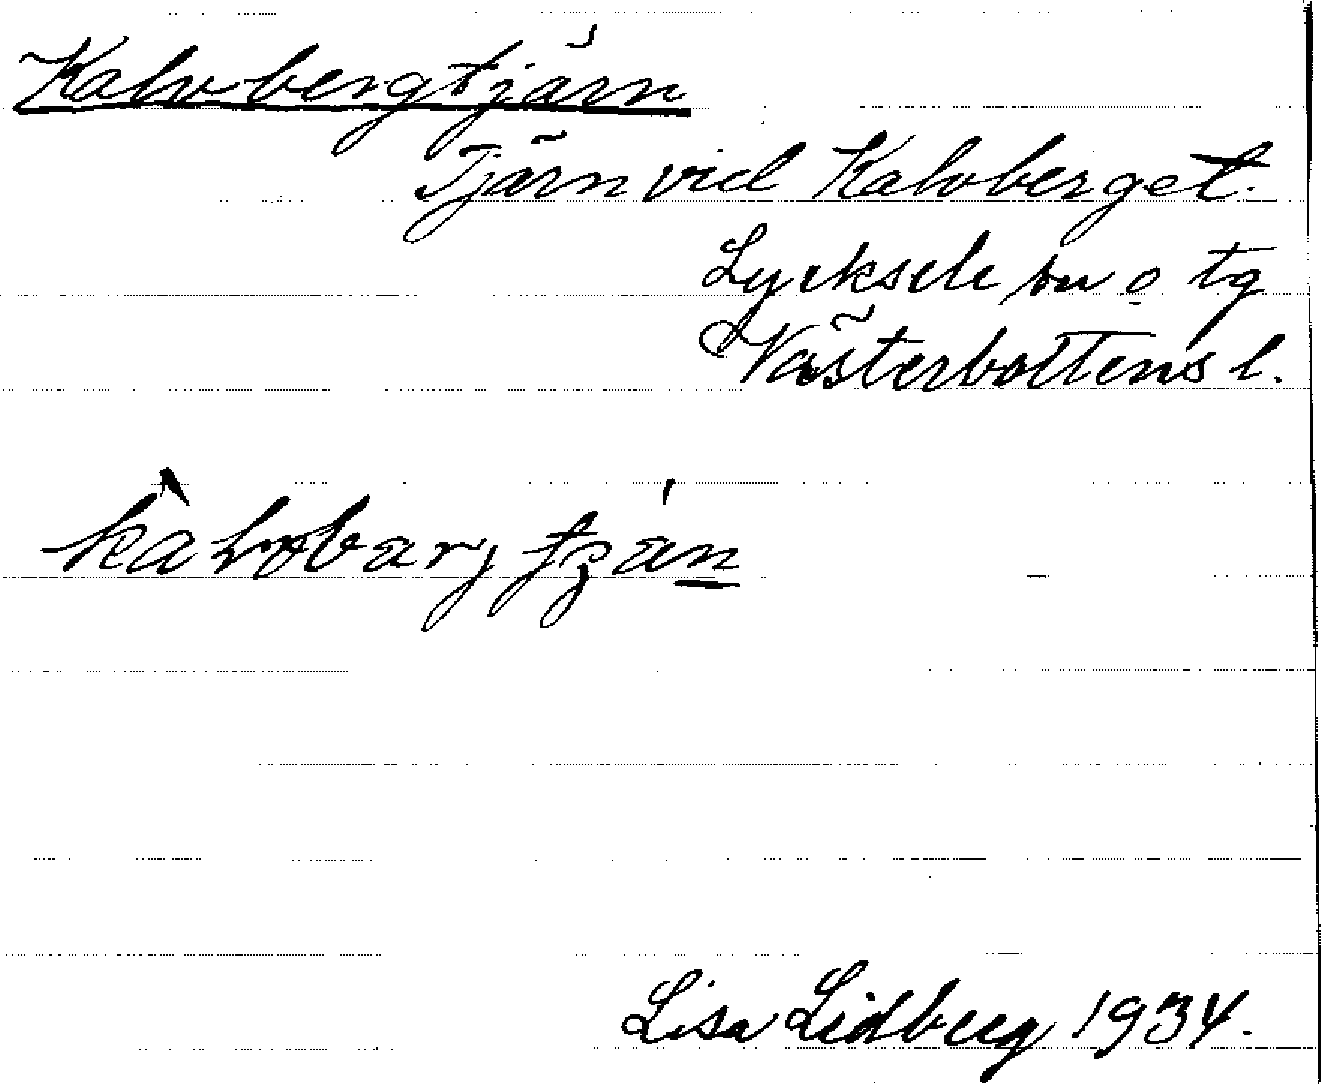 Kalvbergtjärn
Tjärn vid Kalvberget.
Lycksele sn o tg
Västerbottens l.
Lisa Lidberg 1934.